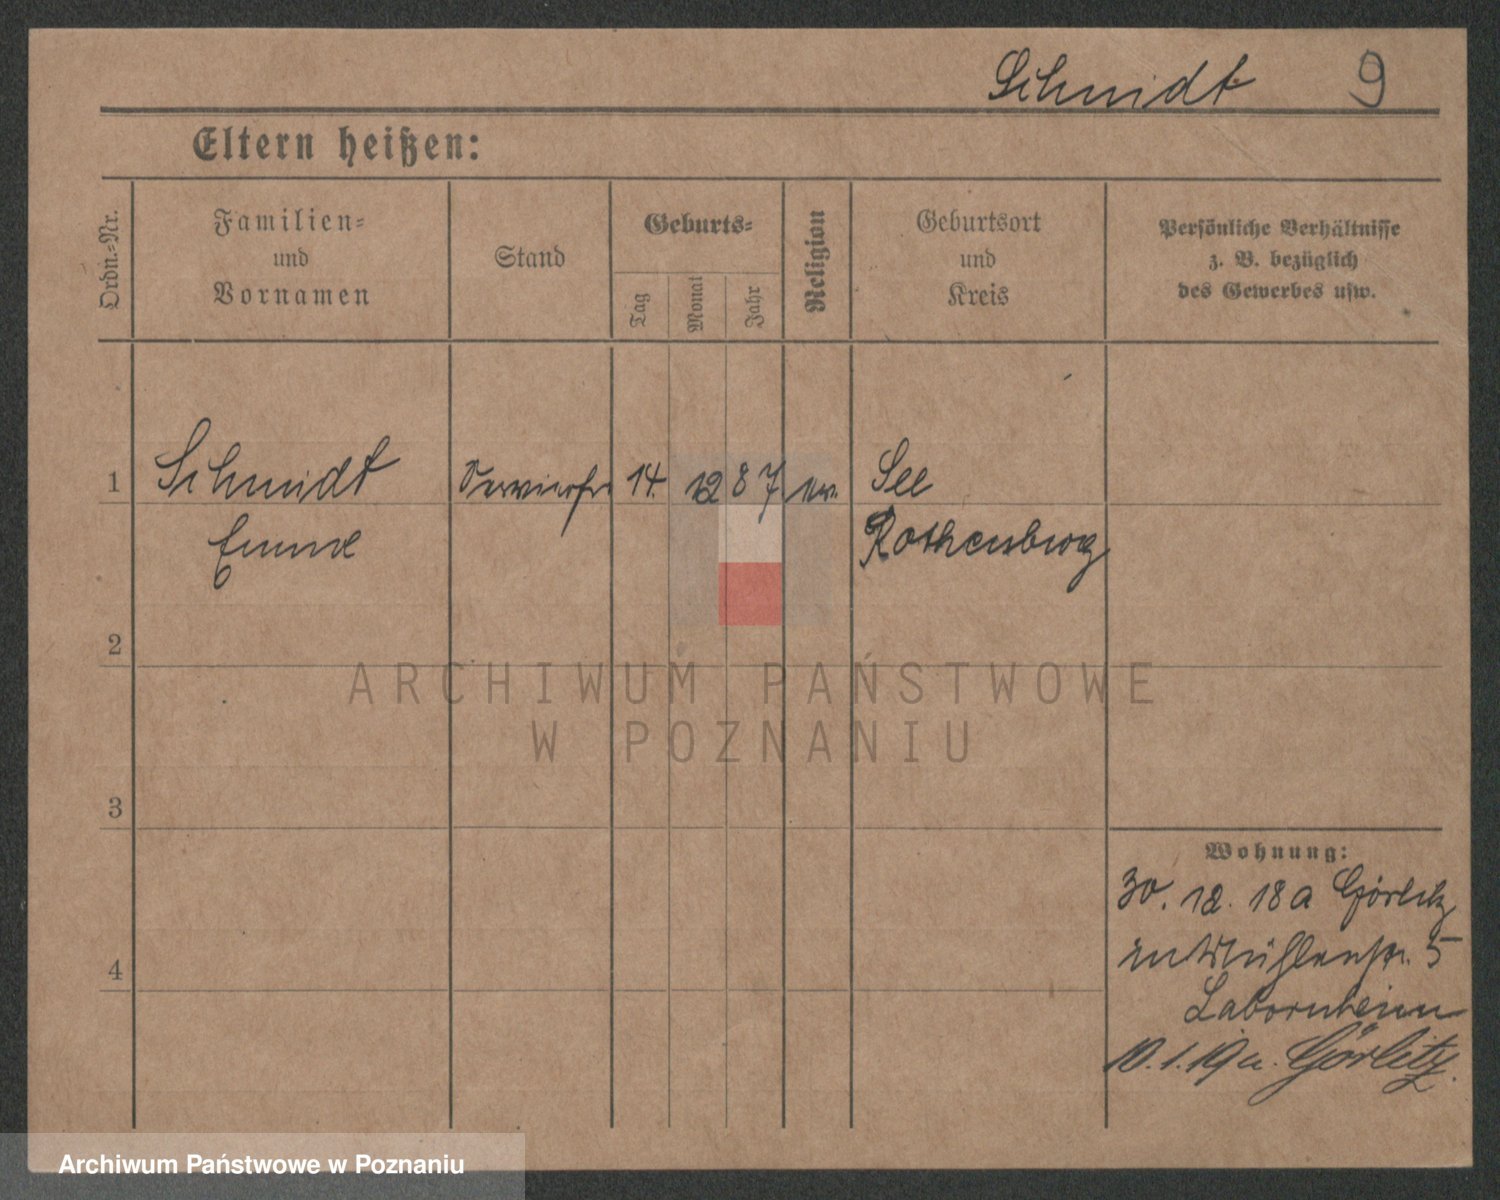 Schmidt 9
Eltern heißen:
Ordn.-Nr.
Familien-
und
Vornamen
Stand
Geburts-
Tag
Monat
Jahr
Religion
Geburtsort
und
Kreis
Persönliche Verhältnisse
z. B. bezüglich
des Gewerbes usw.
1 Schmidt 14. 12 87 ev. See
Rothenburg
2
3
4
Wohnung:
30. 12. 18 a Görlitz
Mühlenstr. 5
10.1.19 a. Görlitz.
ARCHIWUM PAŃSTWOWE
W POZNANIU
Archiwum Państwowe w Poznaniu